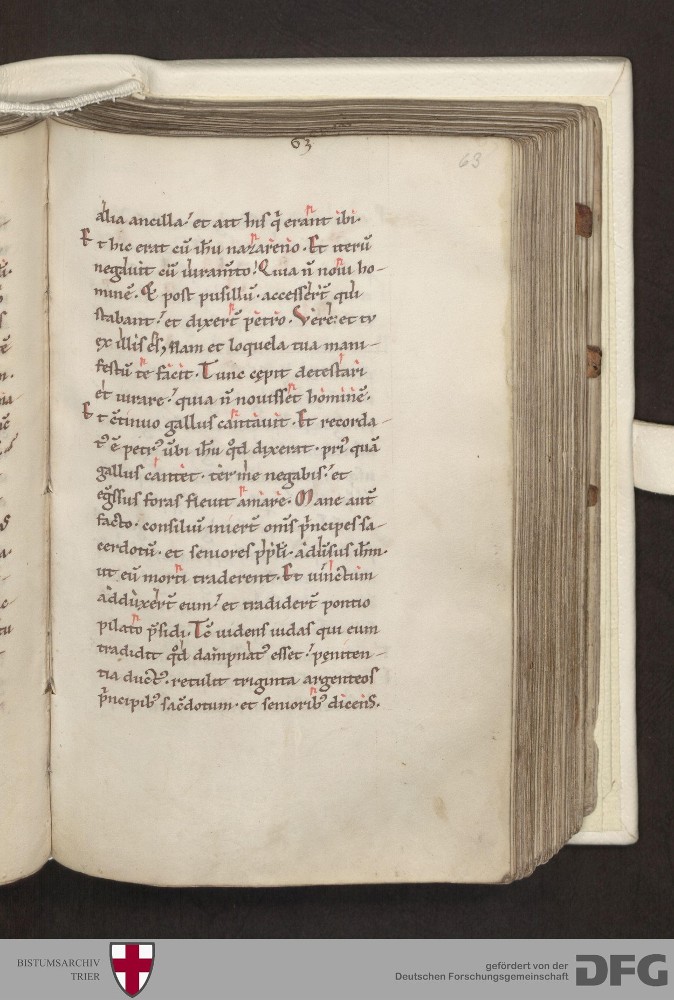 63
63
alia ancilla. et ait his q̄ erant ibi.
Et hic erat cū ihu nazareno. Et iterū
negavit cū iuram̄to. Quia ñ novi ho-
minē. Et post pusillū. accesser̄t qui
stabant. et dixer̄t petro. Vere et tu
ex illis es, Nam et loquela tua mani-
festū te facit. Tunc cepit detestari
et iurare. quia ñ novisset hominē.
Et c̄tinuo gallus cantavit. Et recorda-
tꝰ ē petrꝰ v̄bi ihu qd̄ dixerat. priꝰ quā
gallus cantet. ter me negabis. et
eḡssus foras flevit amare. Mane aut̄
facto. consiliū inier̄t om̄s p̄ncipes sa-
cerdotū. et seniores pp̄li. adūsus ihm̄.
ut eū morti traderent. Et vinctum
adduxer̄t eum. et tradider̄t pontio
pilato p̄sidi. Tc̄ videns iudas qui eum
tradidit qd̄ dampnatꝰ esset. peniten-
tia ductꝰ. retulit triginta argenteos
p̄ncipibꝰ sac̄dotum. et senioribꝰ dicens.
BISTUMSARCHIV
TRIER
gefördert von der
Deutschen Forschungsgemeinschaft
DFG